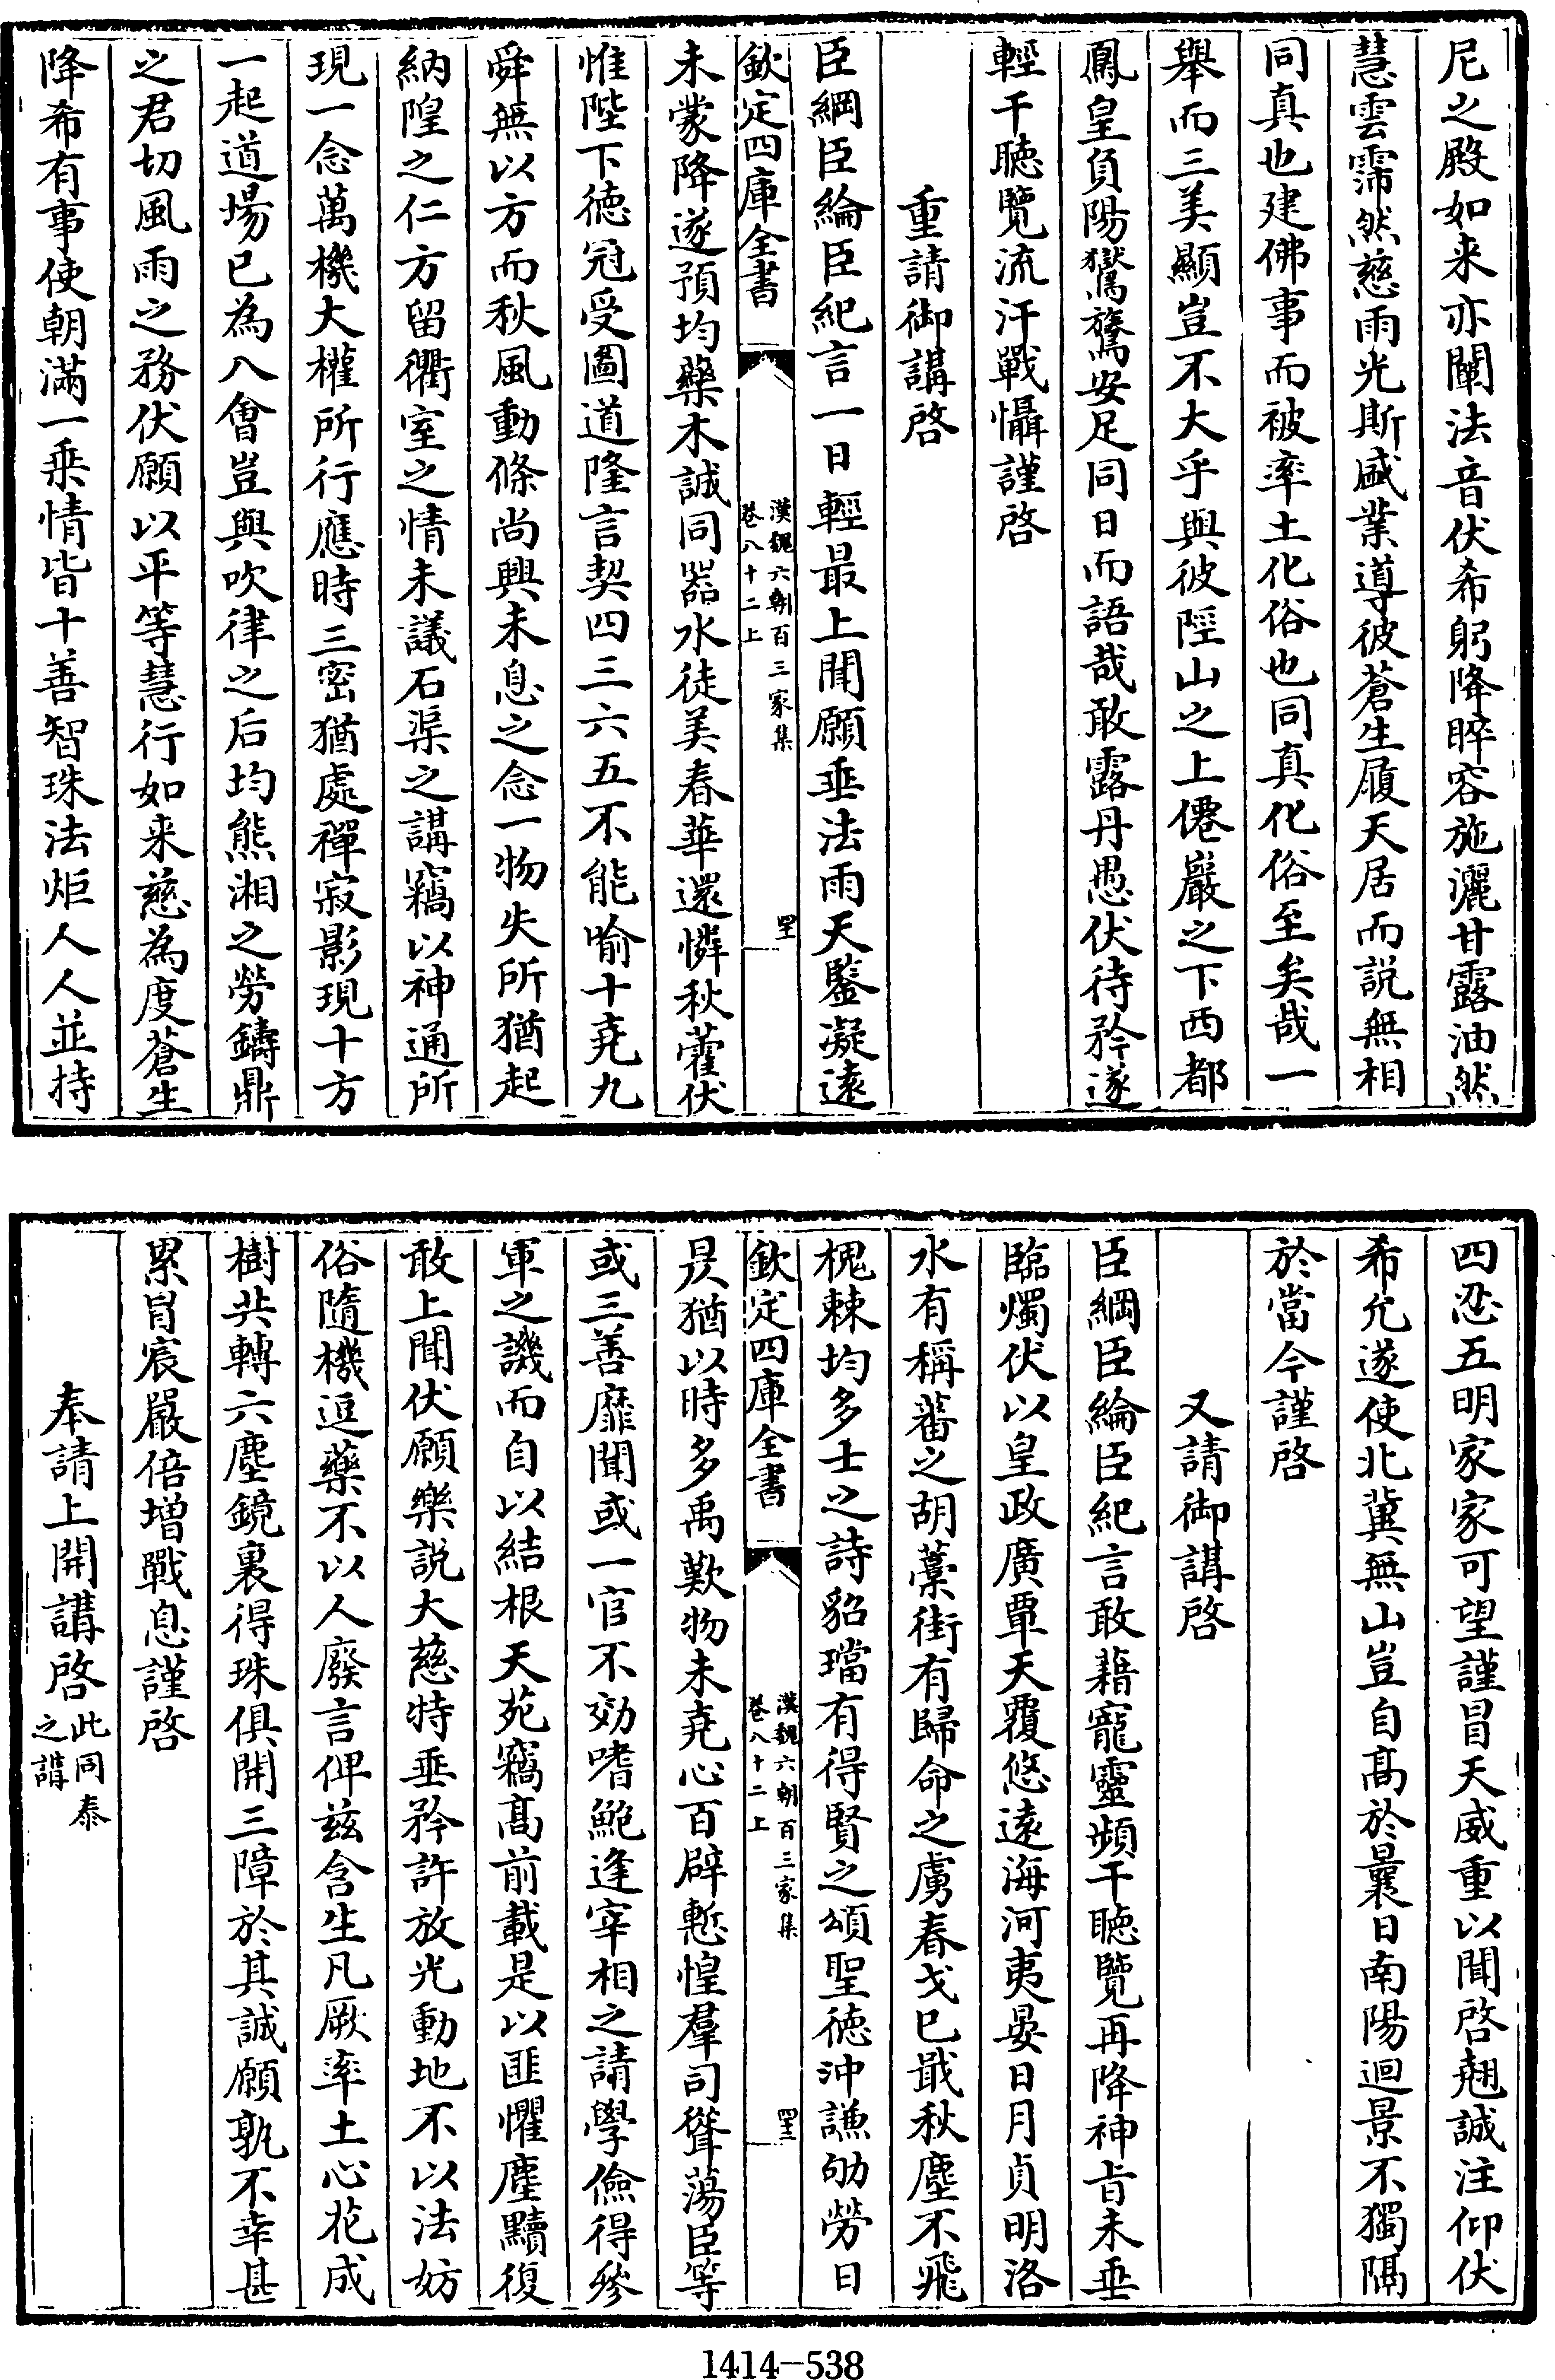 尼之殿如来亦闡法音伏希躬降睟容施灑甘露油然
慧雲霈然慈雨光斯盛業導彼蒼生履天居而説無相
同真也建佛事而被率土化俗也同真化俗至矣哉一
舉而三美顯豈不大乎與彼陘山之上僊巖之下西都
鳳皇負陽鸑鷟安足同日而語哉敢露丹愚伏待矜遂
輕干聴覽流汗戰懾謹啓
重請御講啓
臣綱臣綸臣紀言一日輕最上聞願垂法雨天鑒凝遠
欽定四庫全書
漢魏六朝百三家集
卷八十二上
四十
未蒙降遂預均藥木誠同器水徒美春華還憐秋藿伏
惟陛下徳冠受圖道隆言契四三六五不能喻十堯九
舜無以方而秋風動條尚興未息之念一物失所猶起
納隍之仁方留衢室之情未議石渠之講竊以神通所
現一念萬機大權所行應時三密猶處禪寂影現十方
一起道場已為八會豈與吹律之后均熊湘之勞鑄鼎
之君切風雨之務伏願以平等慧行如来慈為度蒼生
降希有事使朝滿一乗情皆十善智珠法炬人人並持
四忍五明家家可望謹冒天威重以聞啓翹誠注仰伏
希允遂使北冀無山豈自髙於曩日南陽迴景不獨隔
於當今謹啓
又請御講啓
臣綱臣綸臣紀言敢藉寵靈頻干聴覽再降神㫖未垂
臨燭伏以皇政廣覃天覆悠遠海河夷晏日月貞明洛
水有稱蕃之胡藁街有歸命之虜春戈已戢秋塵不飛
槐棘均多士之詩貂璫有得賢之頌聖徳沖謙劬勞日
欽定四庫全書
漢魏六朝百三家集
卷八十二上
昃猶以時多禹歎物未堯心百辟慙惶羣司聳蕩臣等
或三善靡聞或一官不効嗜鮑逢宰相之請學儉得參
軍之譏而自以結根天苑竊髙前載是以匪懼塵黷復
敢上聞伏願樂説大慈特垂矜許放光動地不以法妨
俗隨機逗藥不以人廢言俾兹含生凡厥率土心花成
樹共轉六塵鏡裏得珠俱開三障於其誠願孰不幸甚
累冐宸嚴倍增戰息謹啓
奉請上開講啓此同泰之講
1414-538